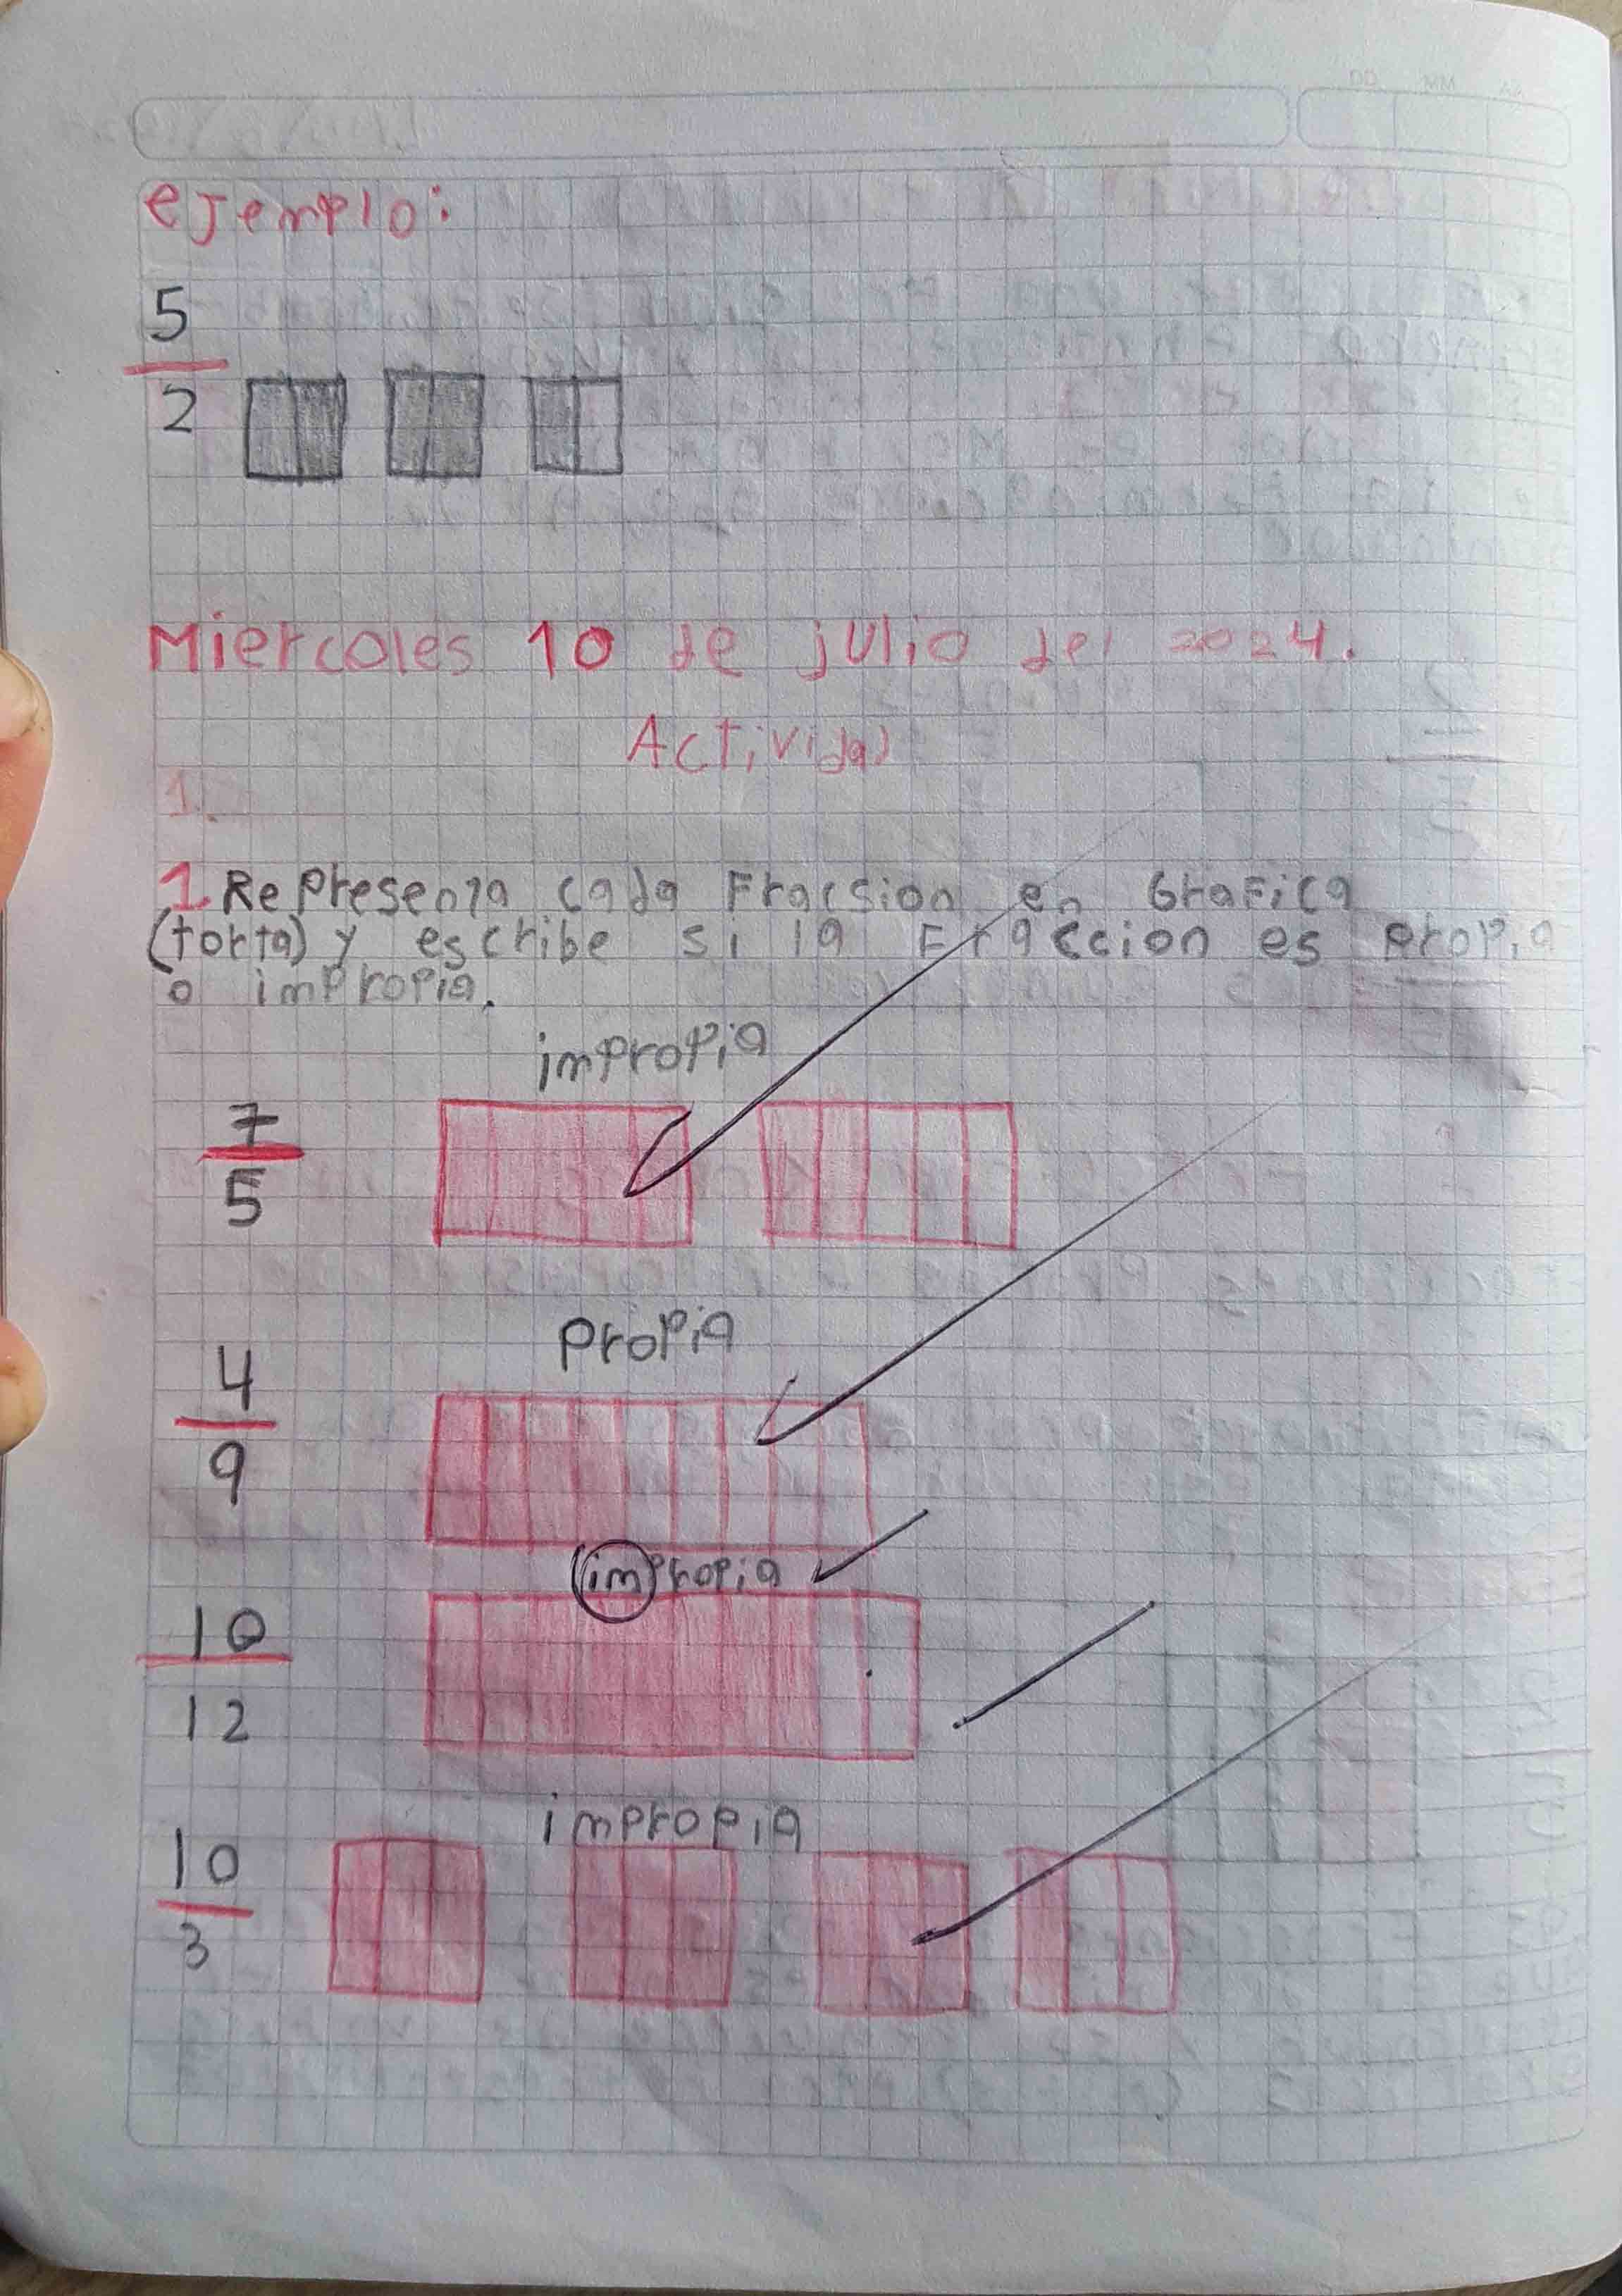 ejemplo:
5
2
Miercoles 10 de julio del 2024.
Actividad
1.
1 Representa cada Fracsion en Grafica
(torta) y escribe si la Fraccion es propia
o impropia.
impropia
7
5
propia
4
9
impropia
10
12
impropia
10
3